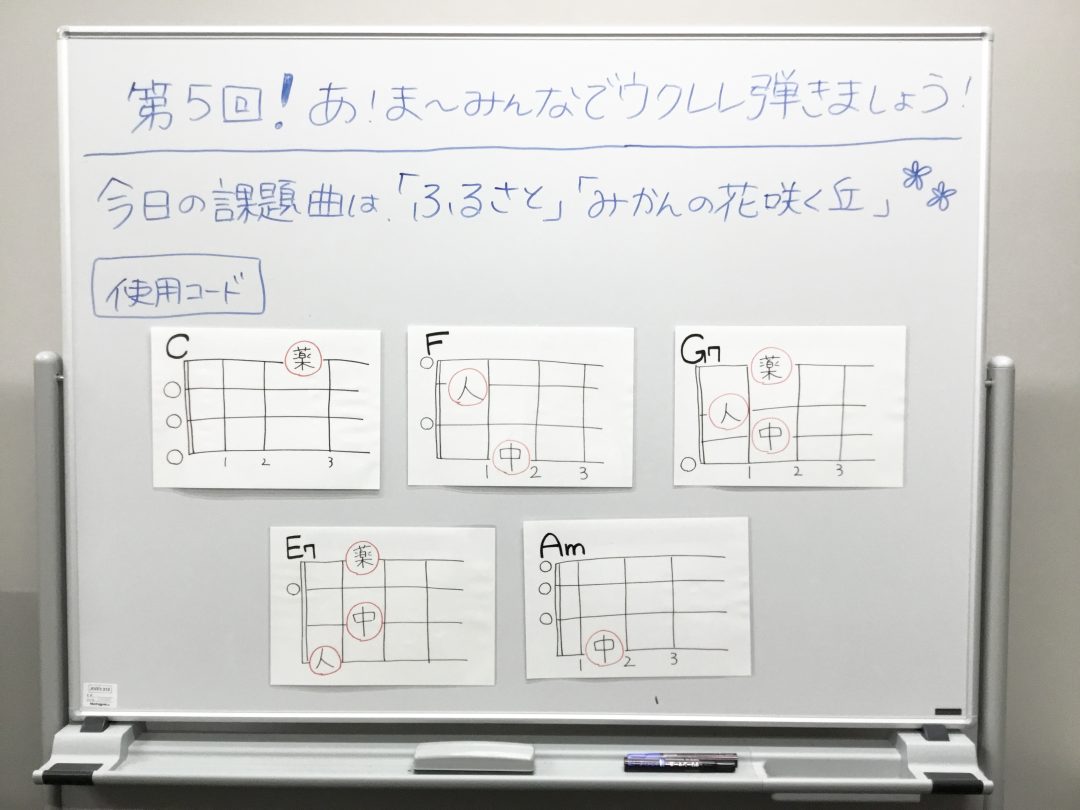 第5回!あ!ま～みんなでウクレレ弾きましょう!
今日の課題曲は、「ふるさと」「みかんの花咲く丘」
使用コード
C
薬
1 2 3
F
人
中
1 2 3
G7
薬
人
中
1 2 3
E7
薬
中
人
Am
中
1 2 3